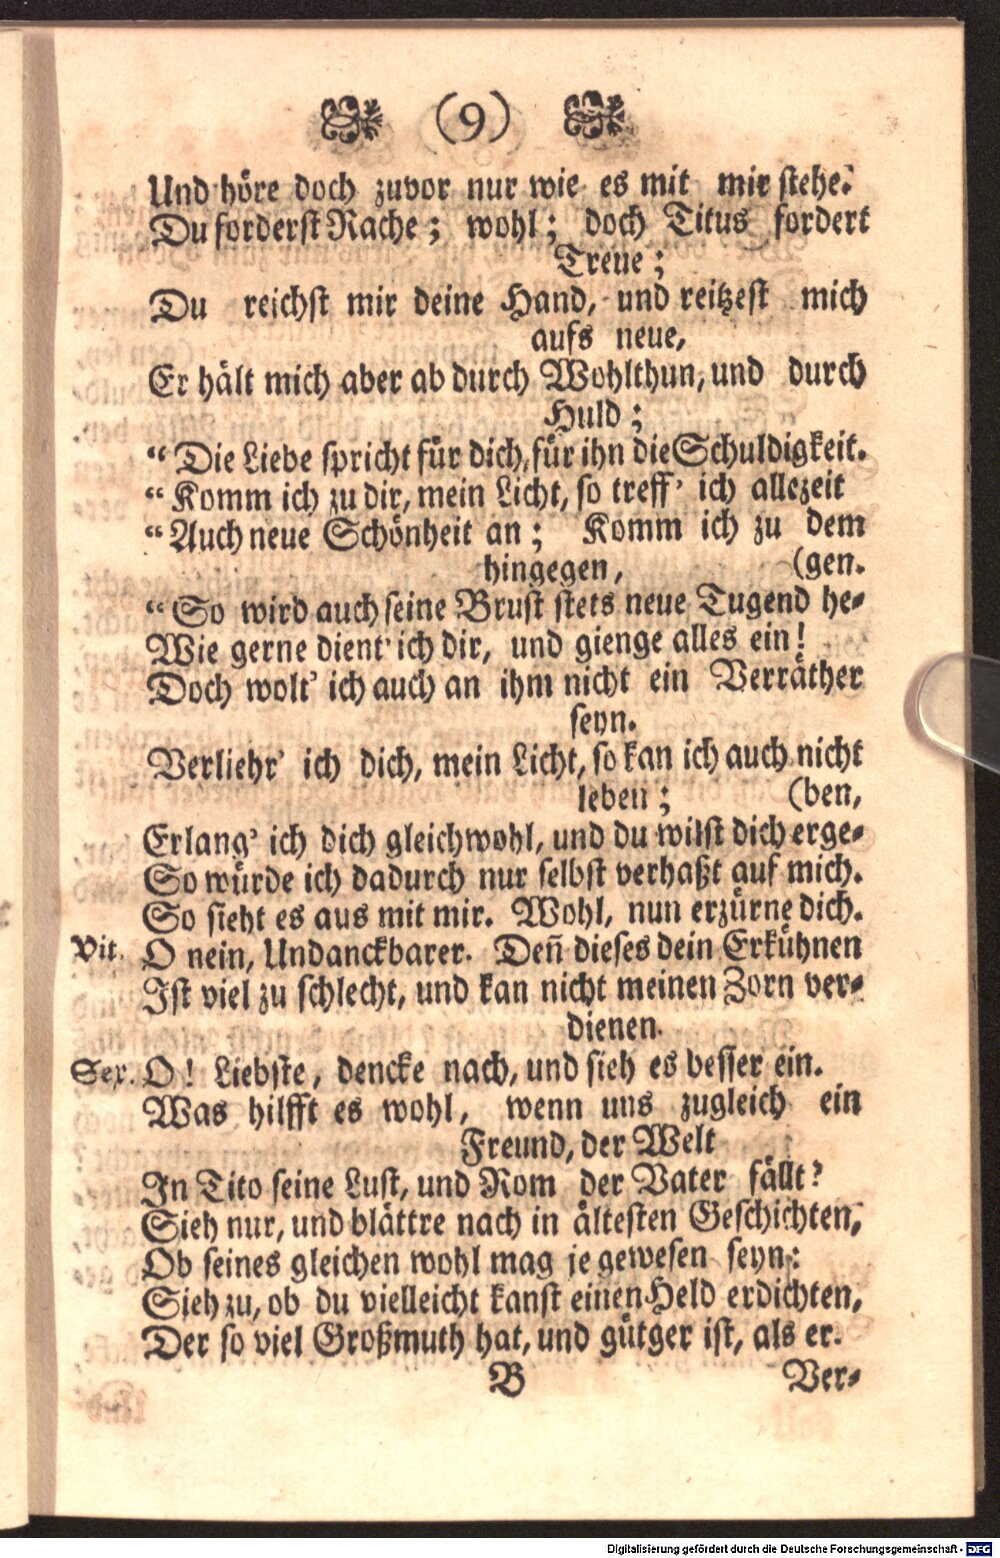 (9)
Und höre doch zuvor nur wie es mit mir stehe.
Du forderst Rache; wohl; doch Titus fordert
Treue;
Du reichst mir deine Hand, und reitzest mich
aufs neue,
Er hält mich aber ab durch Wohlthun, und durch
Huld;
“Die Liebe spricht für dich, für ihn die Schuldigkeit.
“Komm ich zu dir, mein Licht, so treff’ ich allezeit
“Auch neue Schönheit an; Komm ich zu dem
hingegen, (gen.
“So wird auch seine Brust stets neue Tugend he-
Wie gerne dient’ ich dir, und gienge alles ein!
Doch wolt’ ich auch an ihm nicht ein Verräther
seyn.
Verliehr’ ich dich, mein Licht, so kan ich auch nicht
leben; (ben,
Erlang’ ich dich gleichwohl, und du wilst dich erge-
So würde ich dadurch nur selbst verhaßt auf mich.
So sieht es aus mit mir. Wohl, nun erzürne dich.
Vit. O nein, Undanckbarer. Deñ dieses dein Erkühnen
Ist viel zu schlecht, und kan nicht meinen Zorn ver-
dienen.
Sex. O! Liebste, dencke nach, und sieh es besser ein.
Was hilfft es wohl, wenn uns zugleich ein
Freund, der Welt
In Tito seine Lust, und Rom der Vater fällt?
Sieh nur, und blättre nach in ältesten Geschichten,
Ob seines gleichen wohl mag je gewesen seyn:
Sieh zu, ob du vielleicht kanst einen Held erdichten,
Der so viel Großmuth hat, und gütger ist, als er.
B Ver-
Digitalisierung gefördert durch die Deutsche Forschungsgemeinschaft - DFG